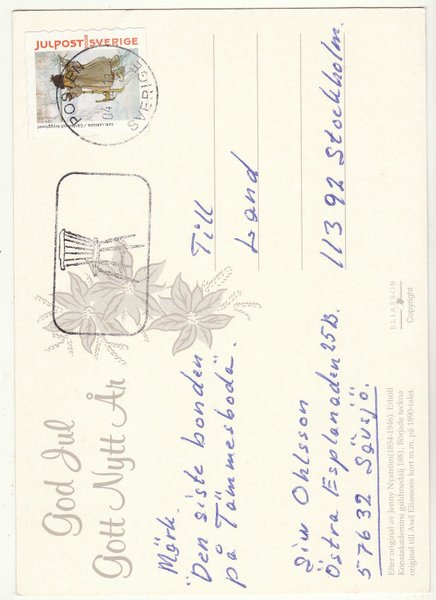 JULPOST SVERIGE
CARL LARSSON / Gårdens och brygghuset
POSTEN
04
SVERIGE
God Jul
Gott Nytt År
Märk.
"Den siste bonden
på Tämmesboda".
Siw Ohlsson
Östra Esplanaden 25B.
57632 Sävsjö.
Till
Land
11392 Stockholm.
ELIASSON
Copyright
Efter original av Jenny Nyström (1854-1946). Erhöll
Konstakademins guldmedalj 1881. Började teckna
original till Axel Eliassons kort m.m. på 1890-talet.